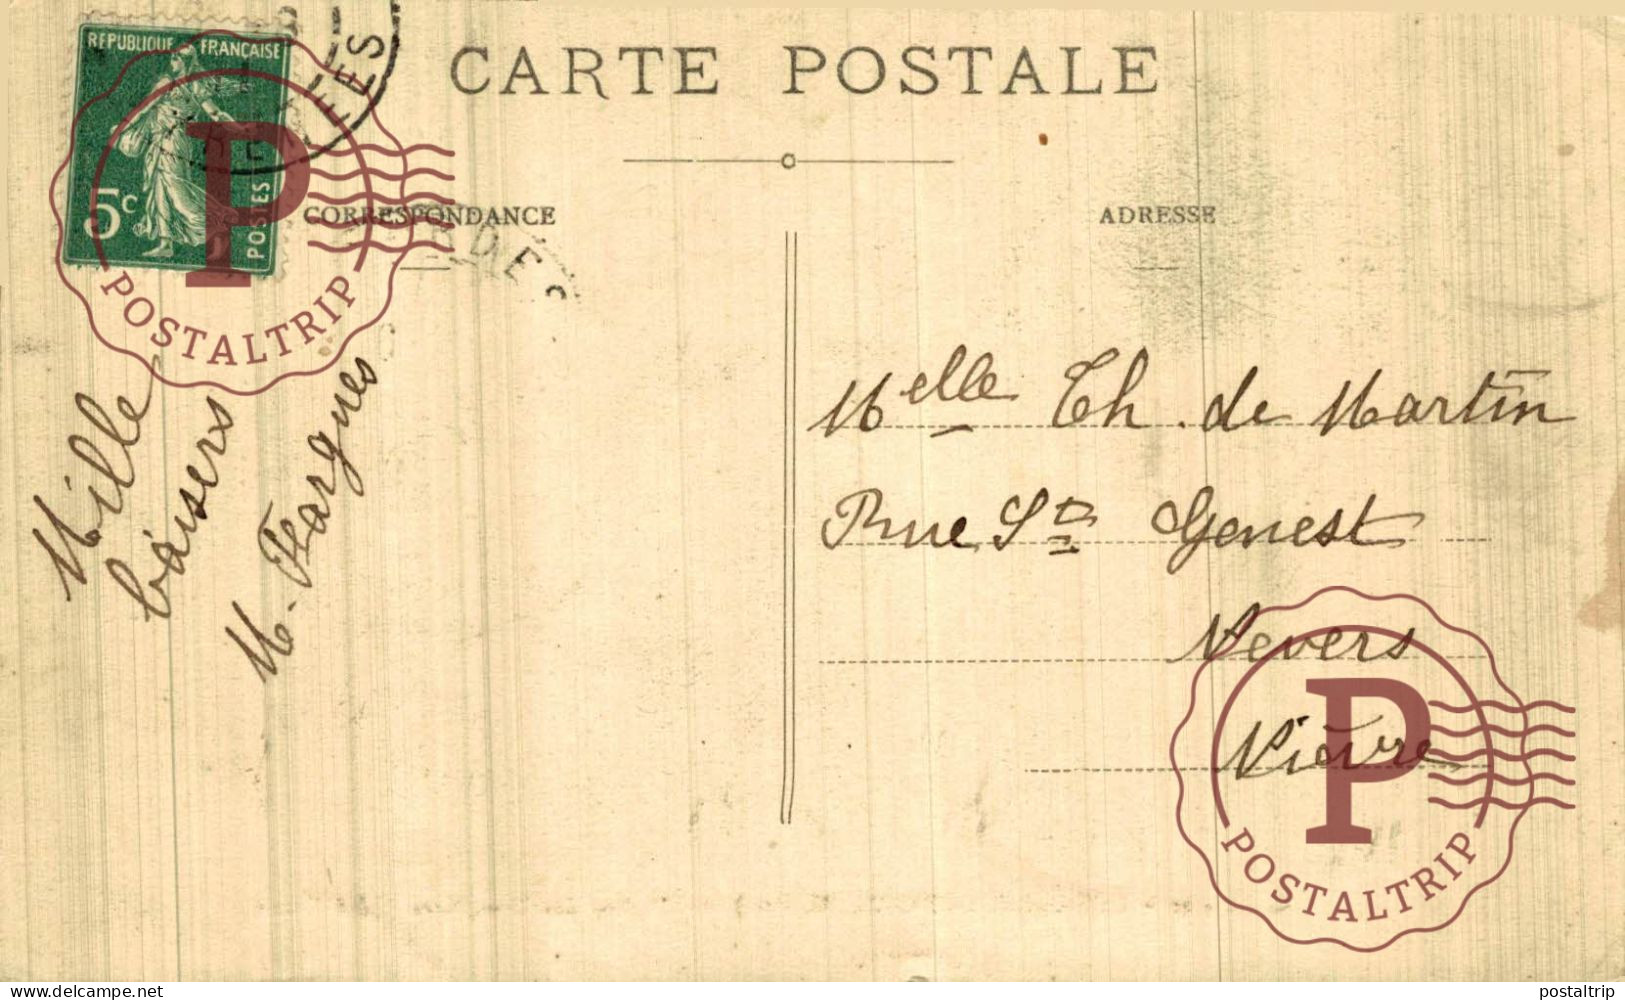 REPUBLIQUE FRANÇAISE
5c
POSTES
CARTE POSTALE
CORRESPONDANCE
ADRESSE
Mille
baisers
M. Fargues
Melle Th. de Martin
Rue Ste Genest
Nevers
Nièvre
P
POSTALTRIP
P
POSTALTRIP
www.delcampe.net
postaltrip